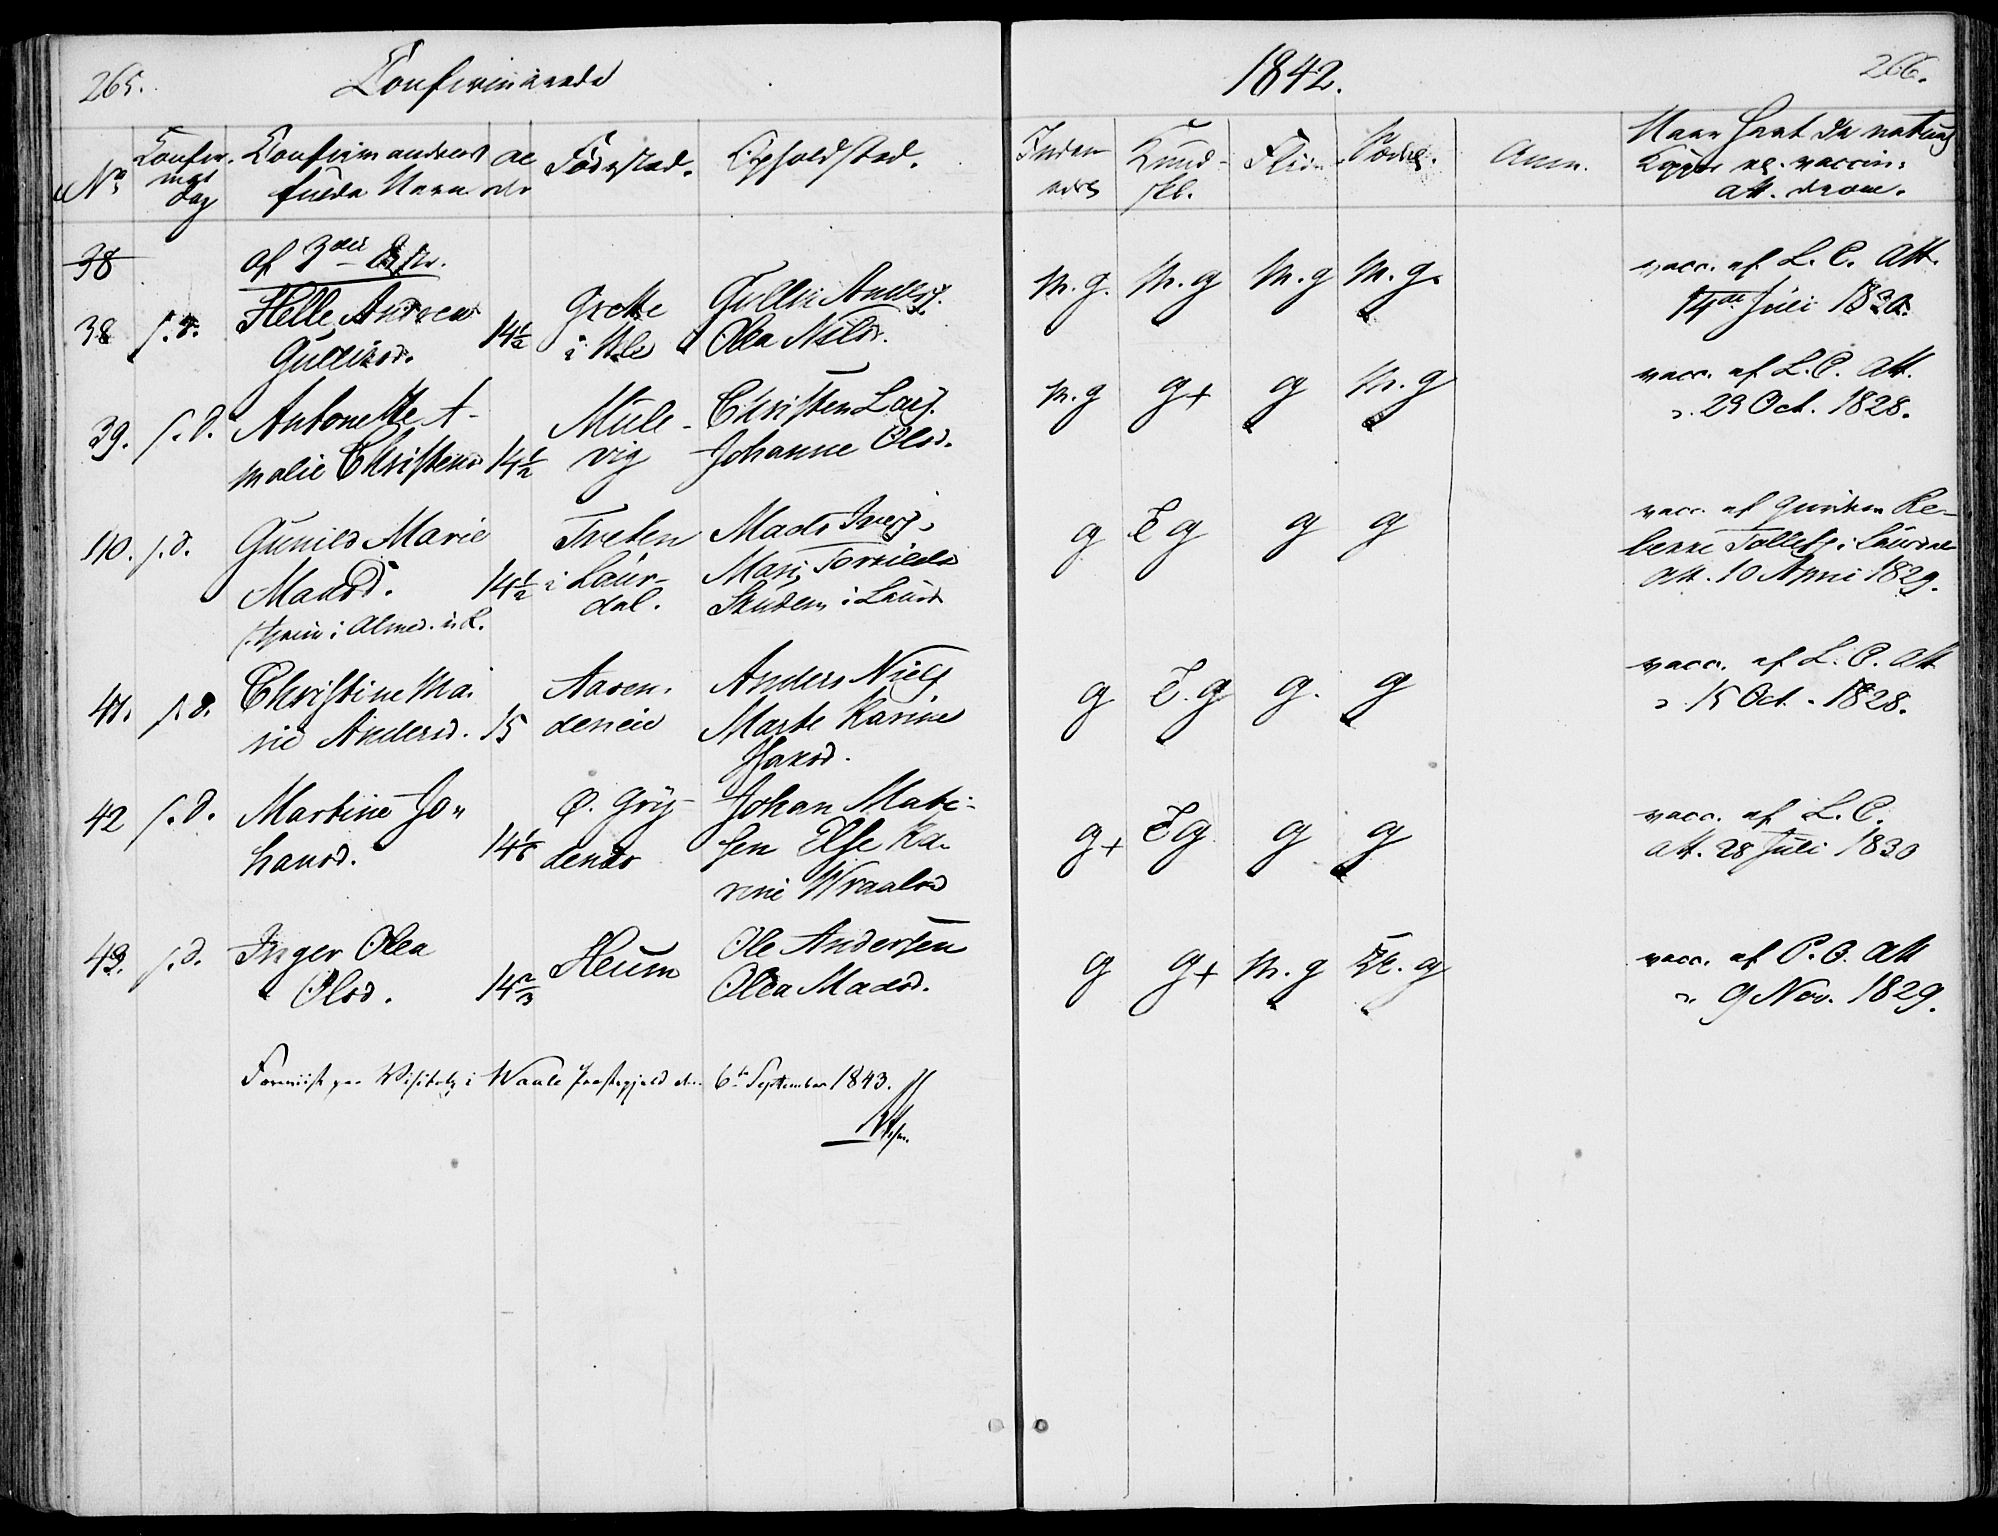 265.
Confirmerede
1842.
266.
No
Confir.
mat
dag
Confirmandens
fulde Navn
Al
der
Fødested.
Opholdsted.
Inden
Kund-
skb.
Flid
Anm.
Naar havt de naturl
Kopper el. vaccin:
att. derom.
38
af 3die
38
s. d.
Helle Andrea
Gullixsd.
14½
Grette
i
Gullix Anders.
Olea Nilsd.
M. g.
M. g
M. g
M. g.
vacc. af L. C. Att.
14de Juli 1830.
39.
s. d.
Antonette A-
malie Christensd
14½
Mule-
vig
Christen Lars.
Johanne Olsd.
M. g
g+
g
M. g
vacc. af L. C. att.
d. 29 Oct. 1828.
40.
s. d.
Gunild Marie
Madsd.
14½
Tveten
i Laur-
dal.
Mads Ivers.
Mari Torkilds
i Laurd
g
T g
g
g
vacc. af Re-
bekke Tollefs. i Laurdal
att. 10 April 1829.
41.
s. d.
Christine Ma-
rie Andersd.
15
Aaren-
deneie
Anders Niels.
Marte Karine
Isaksd.
g
T. g
g.
g
vacc. af L. C. att
d. 15 Oct. 1828.
42
s. d.
Martine Jo-
hansd.
Ø. Gry-
dende
Johan Mati-
sen Else Ka-
rine Wraalsd
g+
T g
g
g
vacc. af L. C.
att. 28 Juli 1830
43.
s. d.
Inger Olea
Olsd.
14⅔
Heum
Ole Andersen
Olea Madsd.
g
g+
M. g
M. g
vacc. af P. B. att
d. 9 Nov. 1829.
Foreviist paa Visitats i Waale Præstegjeld den 6te September 1843.